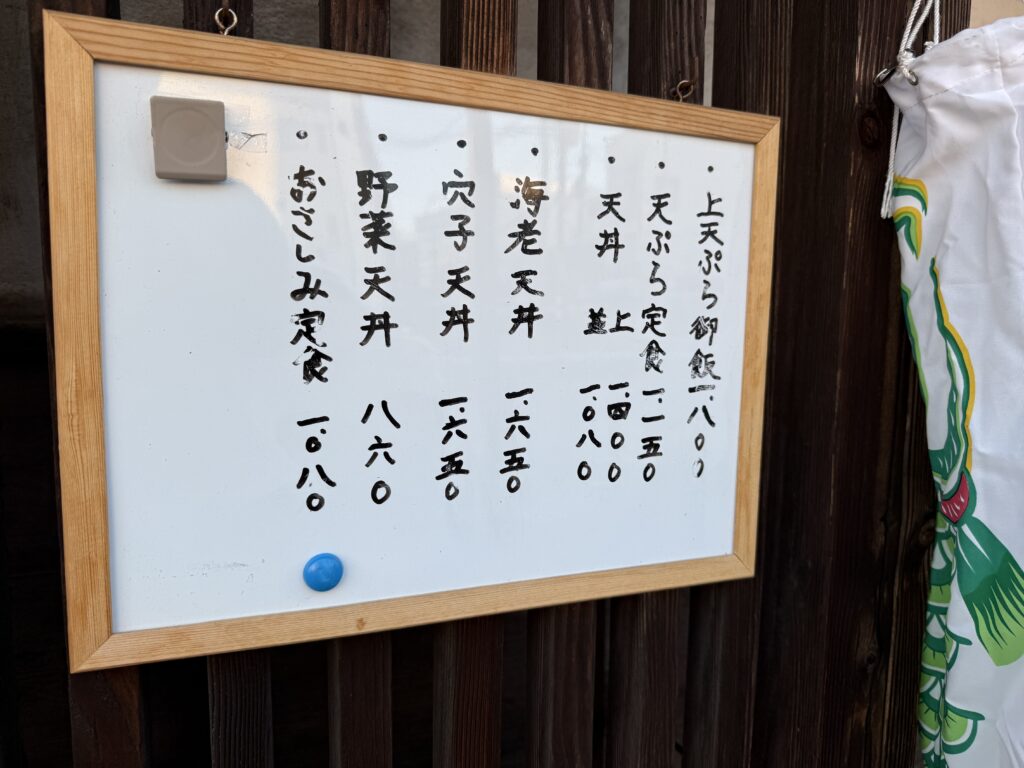 ・上天ぷら御飯 一.八〇〇
・天ぷら定食 一.一五〇
・天丼 上 一.四〇〇
並 一.〇八〇
・海老天丼 一.六五〇
・穴子天丼 一.六五〇
・野菜天丼 八六〇
・おさしみ定食 一.〇八〇